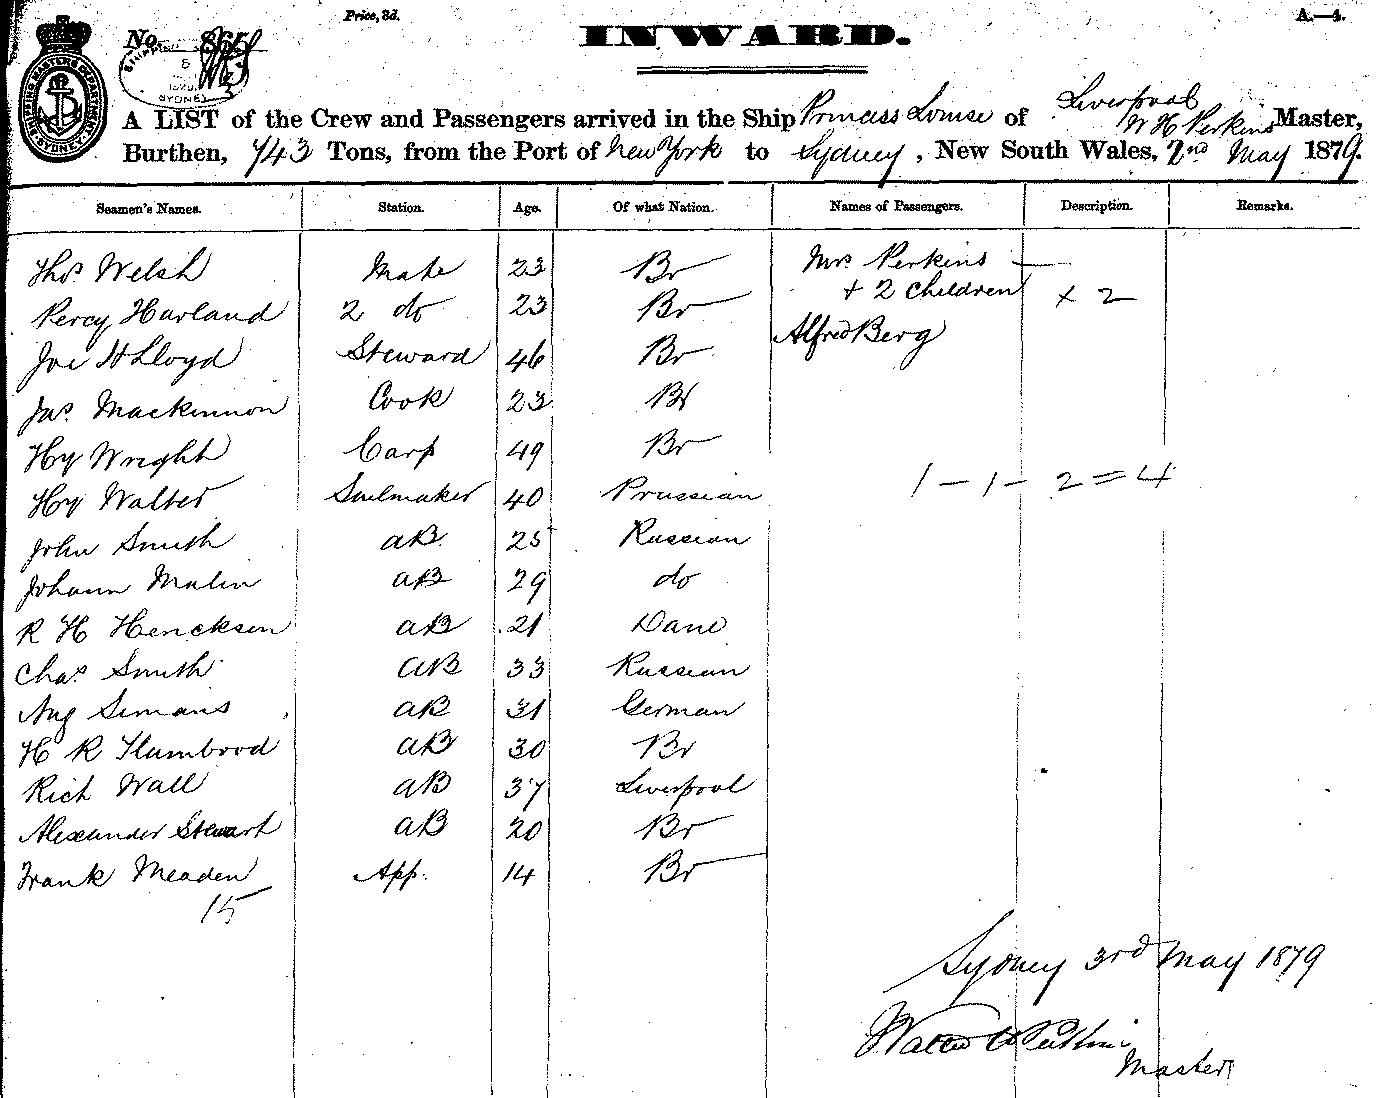 Price, 3d.
A.—4.
No.
INWARD.
SHIPPING MASTERS DEPARTMENT SYDNEY
SYDNEY
A LIST of the Crew and Passengers arrived in the Ship Princess Louise of Liverpool W H Perkins Master,
Burthen, 743 Tons, from the Port of New York to Sydney, New South Wales, 2nd May 1879.
Seamen's Names. Station. Age. Of what Nation. Names of Passengers. Description. Remarks.
Thos Welsh Mate 23 Br Mrs Perkins —
+ 2 children + 2
Percy Harland 2 do 23 Br
Alfred Berg
Joe H Lloyd Steward 46 Br
Jas Mackinnon Cook 23 Br
Hy Wright Carp 49 Br
Hy Walter Sailmaker 40 Prussian 1 — 1 — 2 = 4
John Smith AB 25 Russian
Johann Malin AB 29 do
R H Hencksen AB 21 Dane
Chas Smith AB 33 Russian
Aug Simans AB 31 German
H R AB 30 Br
Rich Wall AB 37 Liverpool
Alexander Stewart AB 20 Br
Frank Meaden App. 14 Br
15
Sydney 3rd May 1879
Walter H Perkins
Master